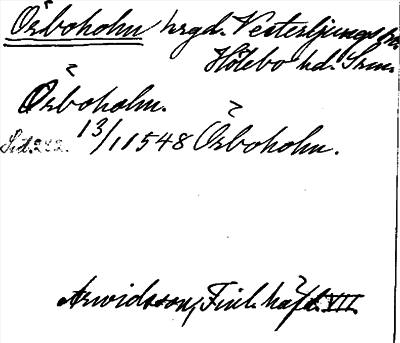 Örboholm hrgd. Vesterljungs sn.
Hölebo hd. Srm.
Örboholm.
Sid. 282. 13/1 1548 Örboholm.
Arwidsson, Finl. häfd. VII.